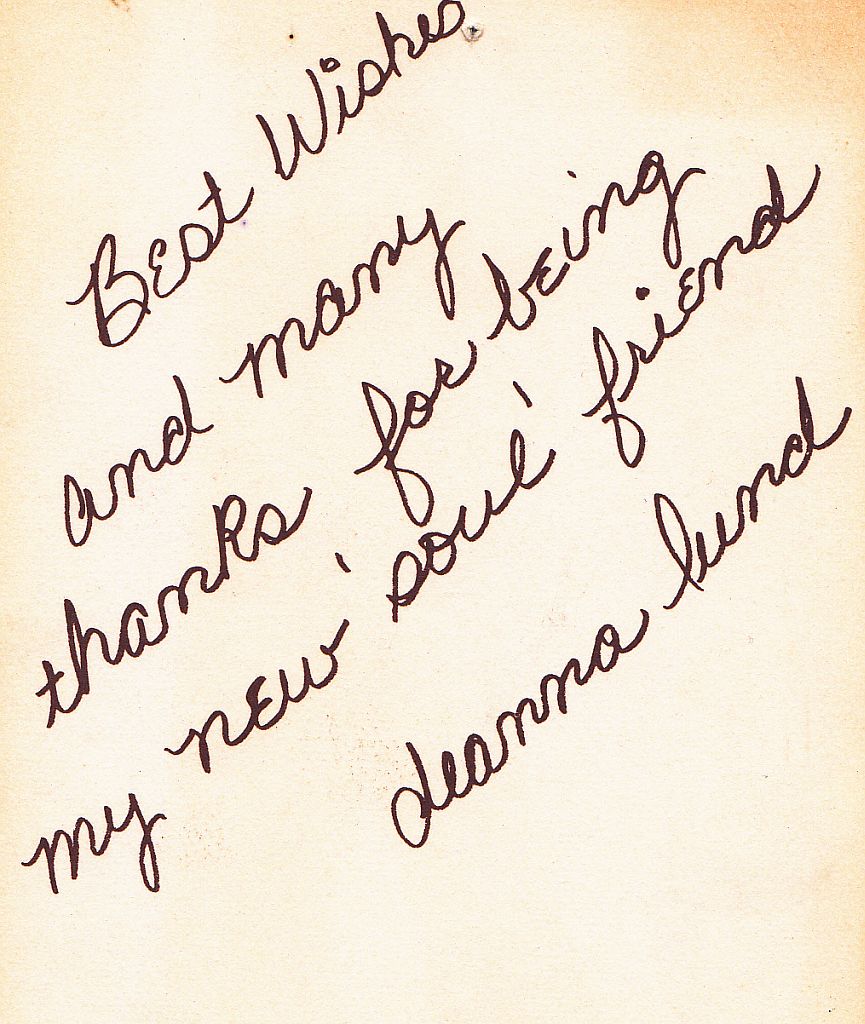 Best Wishes
and many
thanks for being
my new 'soul' friend
deanna lund